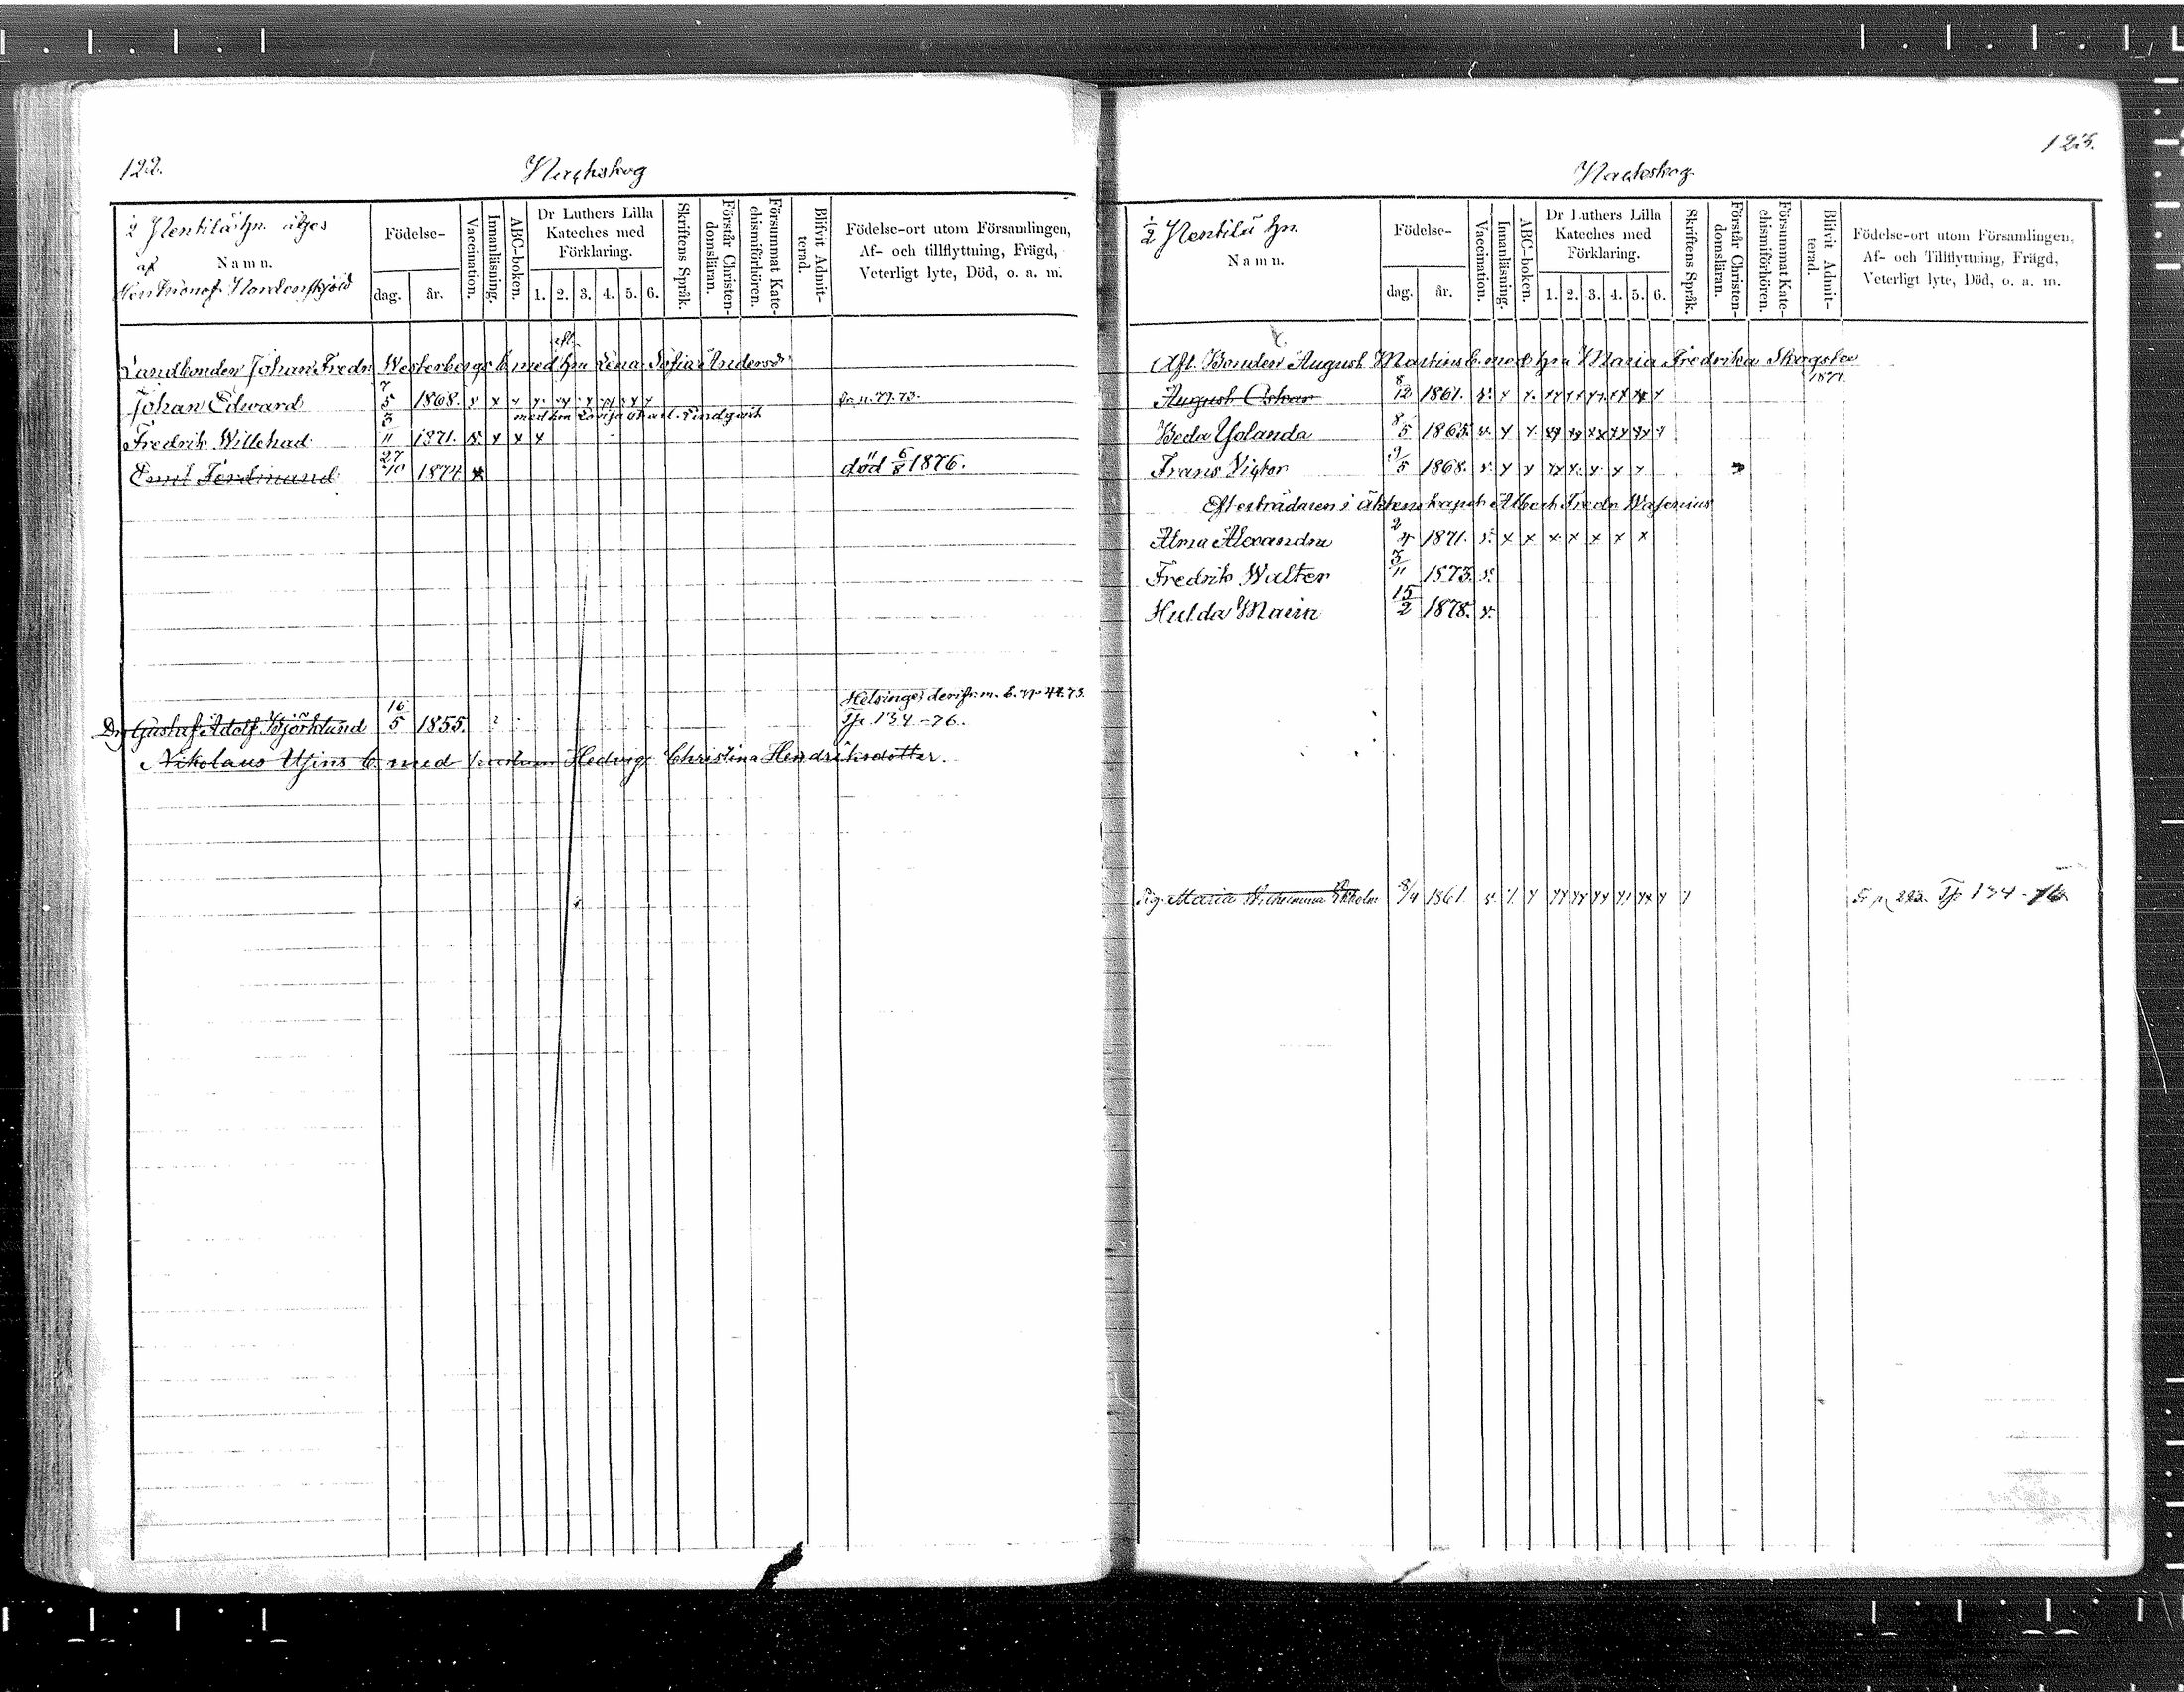 122.
Nackskog
½ Nentilä hn. äges
af
Namn.
Nordenskjöld
Födelse-
dag.
år.
Vaccination.
Innanläsning.
ABC-boken.
Dr Luthers Lilla
Kateches med
Förklaring.
1. 2. 3. 4. 5. 6.
Skriftens Språk.
Förstår Christen-
domsläran.
Försummat Kate-
chismiförhören.
Blifvit Admit-
terad.
Födelse-ort utom Församlingen,
Af- och tillflyttning, Frägd,
Veterligt lyte, Död, o. a. m.
Landbonden Johan Fredr. Westerbergs b. med hu Lena Sofia Andersdr
Johan Edward 7/5 1868. v x x x x x x x x fr. n. 79. 73.
med hu Lovisa Lindqvist
Fredrik Willehad 3/11 1871. v. x x x
Emil Ferdinand 27/10 1874 x död 6/8 1876.
Helsinge, derifr. m. b. No 44. 73.
Dr. Gustaf Adolf Björklund 16/5 1855. Tfr 134-76.
Nikolaus b. med Hedvig Christina Hendriksdotter.
123.
Nackskog
½ Nentilä hn.
Namn.
Födelse-
dag.
år.
Vaccination.
Innanläsning.
ABC-boken.
Dr Luthers Lilla
Kateches med
Förklaring.
1. 2. 3. 4. 5. 6.
Skriftens Språk.
Förstår Christen-
domsläran.
Försummat Kate-
chismiförhören.
Blifvit Admit-
terad.
Födelse-ort utom Församlingen,
Af- och Tillflyttning, Frägd,
Veterligt lyte, Död, o. a. m.
Afl. Bonden August Martins b. med hu Maria Fredrika
August Oskar 8/12 1861. v. x x xx xx xx xx xx x
Beda Yolanda 8/5 1865. v. x x xx xx xx xx xx x
Frans Victor 9/5 1868. v. x x xx x x x x
Efterträdaren i äktenskapet Albert Fredr Wasenius
Alma Alexandra 2/4 1871. v. x x x x x x x
Fredrik Walter 3/11 1873. v.
Hulda Maria 15/2 1878. v.
Pig. Maria Wilhelmina Ekholm 8/4 1861. v. x x xx xx xx x xx x Fr p 223. Tfr 134-76